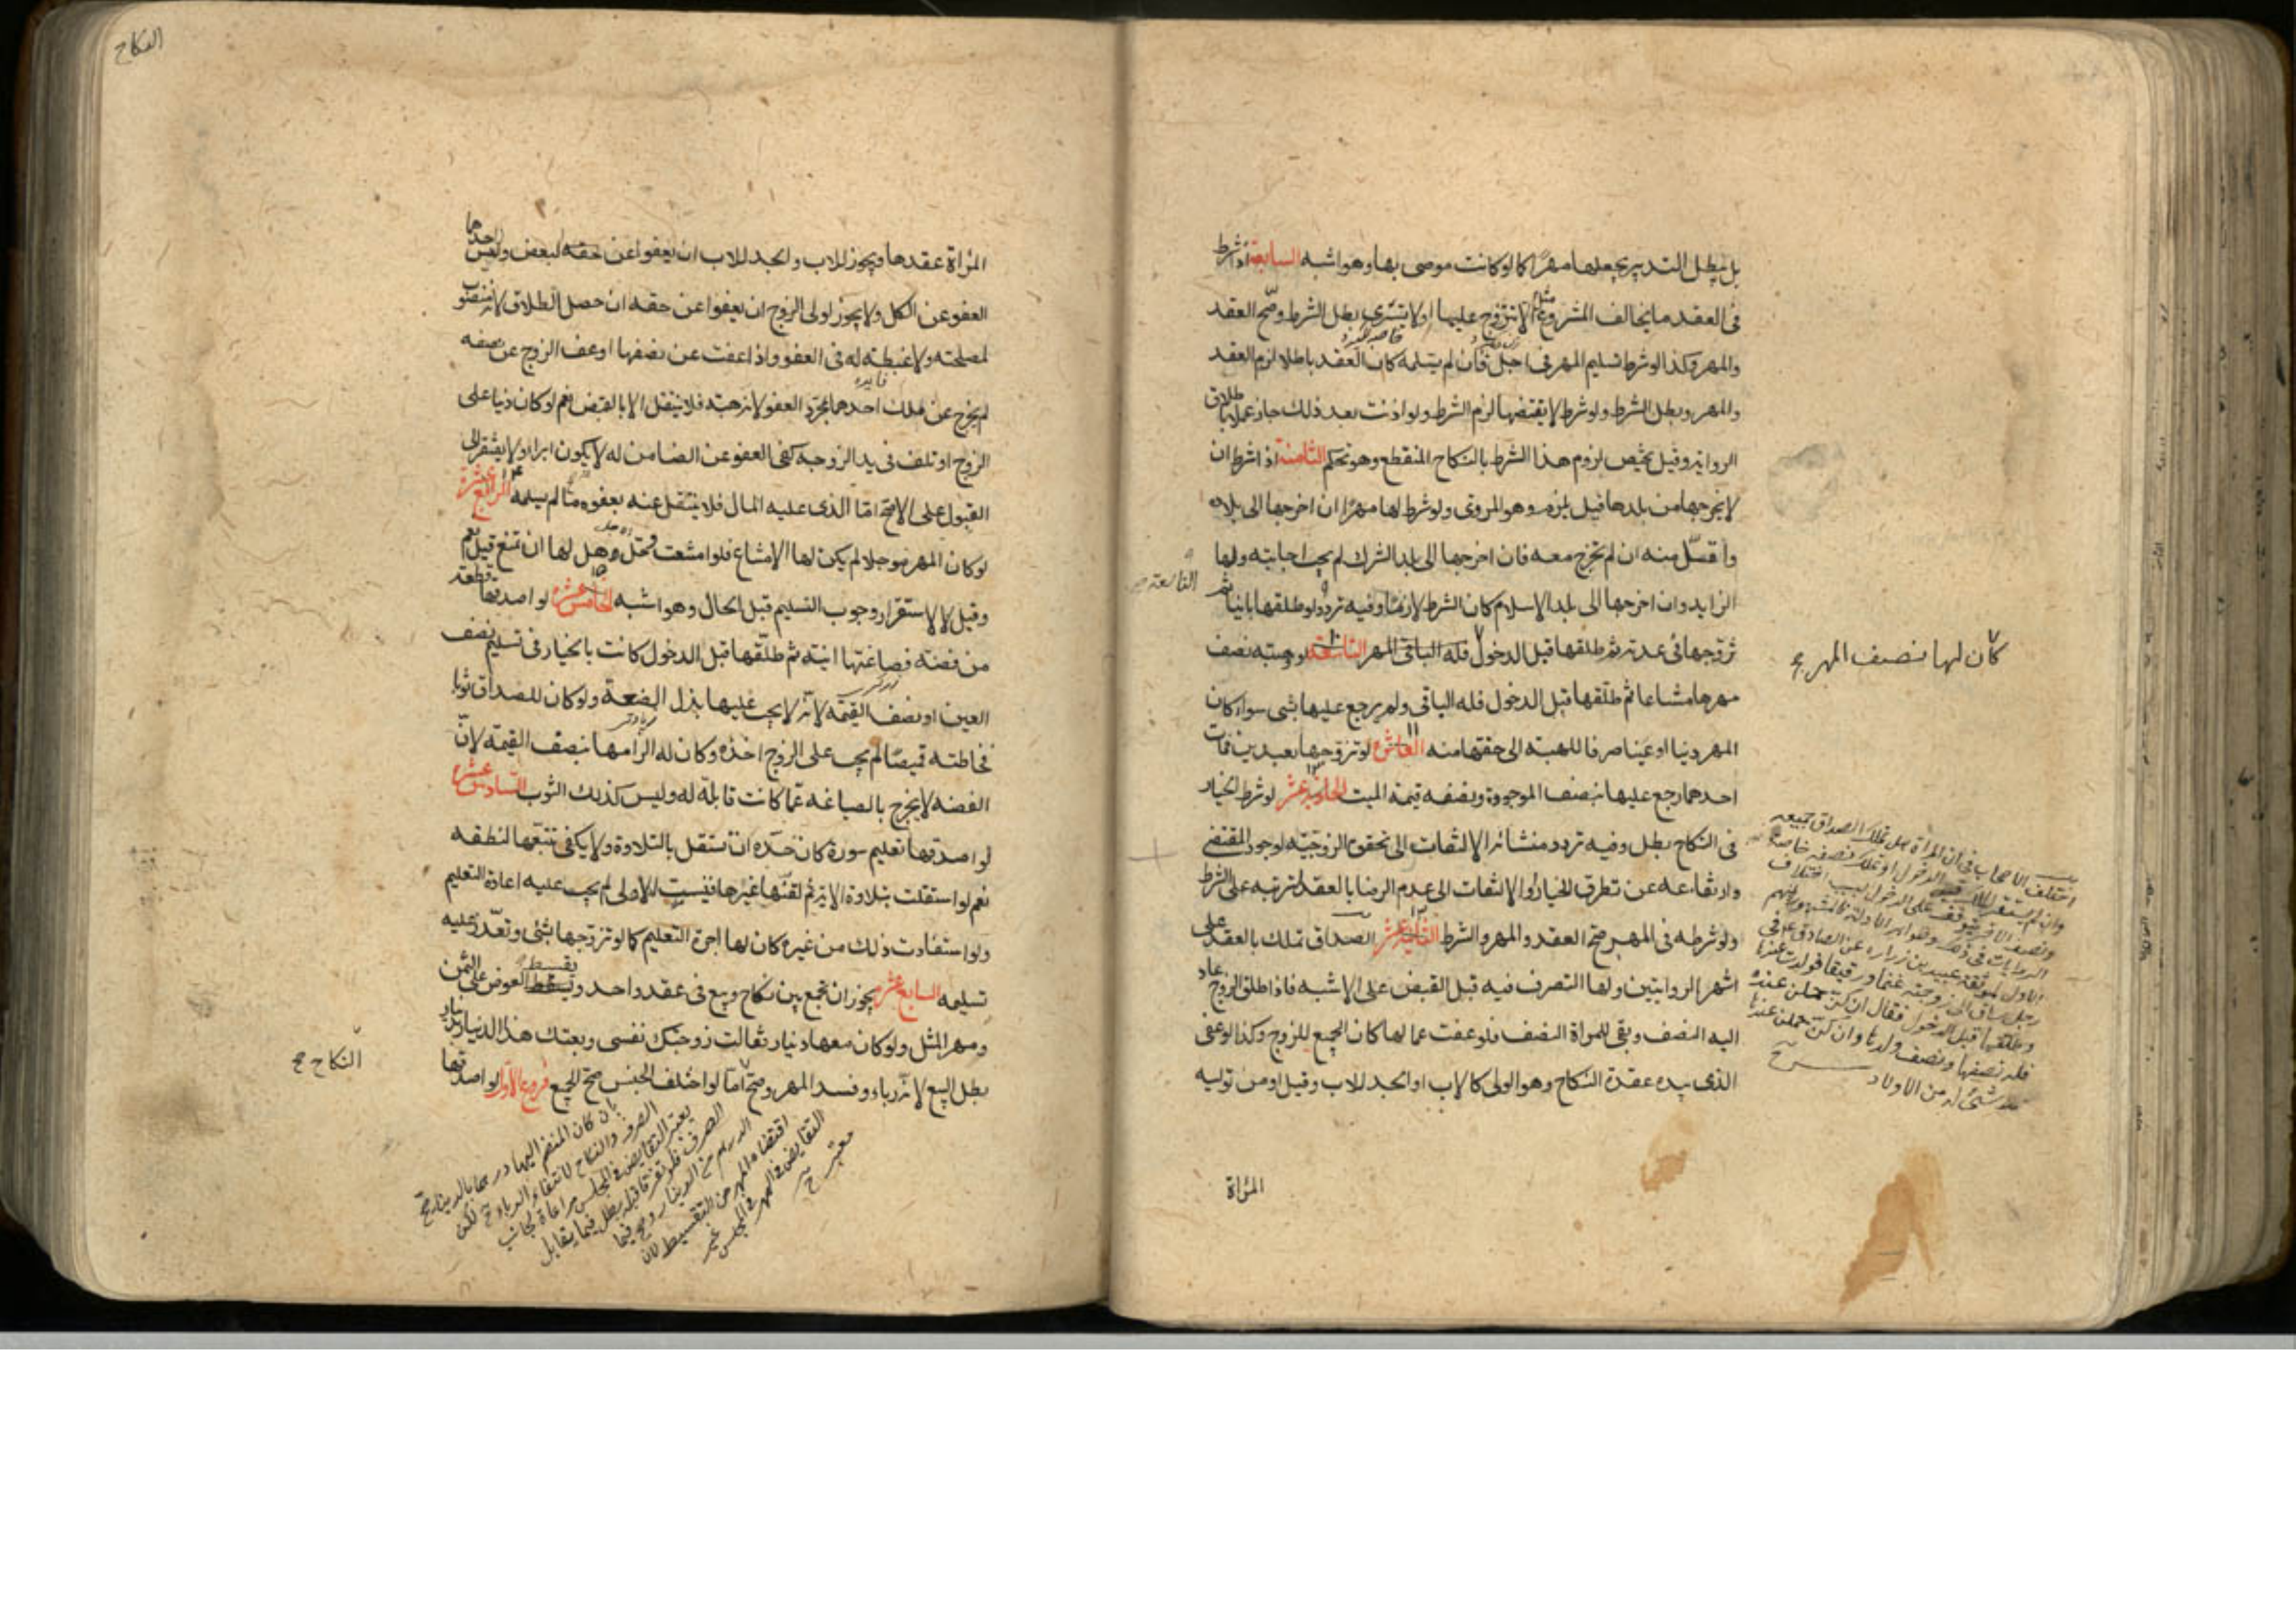 بل يبطل التدبير بجعلها مهرًا كما لو كانت موصى بها وهو اشبه السابعة اذا شرط
فى العقد ما يخالف المشروع مثل الا يتزوج عليها او لا يتسرى بطل الشرط وصح العقد
والمهر وكذا لو شرط تسليم المهر فى اجل فان لم يسلمه كان العقد باطلا لزم العقد
والمهر وبطل الشرط ولو شرط لا يقتضها لزم الشرط ولو اذنت بعد ذلك جاز عملا باطلاق
الرواية وقيل يختص لزوم هذا الشرط بالنكاح المنقطع وهو تحكم الثامنة اذا شرط ان
لا يخرجها من بلدها قيل يلزم وهو المروى ولو شرط لها مهرًا ان اخرجها الى بلاده
واقل منه ان لم تخرج معه فان اخرجها الى بلد الشرك لم يجب اجابته ولها
الزايد وان اخرجها الى بلد الاسلام كان الشرط لازما وفيه تردد ولو طلقها باينا ثم
تزوجها فى عدته ثم طلقها قبل الدخول فله الباقى المهر التاسعة لو وهبته نصف
مهرها مشاعا ثم طلقها قبل الدخول فله الباقى ولم يرجع عليها بشى سواء كان
المهر دينا او عينا صرفا للهبته الى حقها منه العاشرة لو تزوجها بعبدين فمات
احدهما رجع عليها بنصف الموجود ونصف قيمة الميت الحادية عشر لو شرط الخيار
فى النكاح بطل وفيه تردد منشائه الالتفات الى تحقق الزوجيّه لوجود المقتضى
وارتفاعه عن تطرق الخيار او الالتفات الى عدم الرضا بالعقد لترتبه على الشرط
ولو شرطه فى المهر صح العقد والمهر والشرط الثانية عشر الصداق تملك بالعقد على
اشهر الروايتين ولها التصرف فيه قبل القبض على الاشبه فاذا طلق الزوج عاد
اليه النصف وبقى للمراة النصف فلو عفت عما لها كان الجميع للزوج وكذا لو عفى
الذى بيده عقدة النكاح وهو الولى كالاب او الجد للاب وقيل او من توليه
المراة
كان لها نصف المهر صح
اختلف الاصحاب فى ان المراة هل تملك الصداق جميعه
رجل ساق الى زوجته غنما ورقيقا فولدت عندها
وطلقها قبل الدخول فقال ان كن حملن عنده
فله نصفها ونصف ولدها وان كن حملن عندها
النكاح
المراة عقدها ويجوز للاب والجد للاب ان يعفوا عن حقه لبعض وليس لاحدهما
العفو عن الكل ولا يجوز لولى الزوج ان يعفوا عن حقه ان حصل الطلاق لانه منصوب
لمصلحته ولا غبطته له فى العفو واذا عفت عن نصفها او عفى الزوج عن نصفه
لم يخرج عن ملك احدهما بمجرد العفو لانه هبة فلا ينتقل الا بالقبض نعم لو كان دينا على
الزوج او تلف فى يد الزوجه كفى العفو عن الضامن له لا يكون ابراء ولا يفتقر الى
القبول على الاصح اما الذى عليه المال فلا ينتقل عنه بعفوه ما لم يسلمه الرابع عشرة
لو كان المهر موجلا لم يكن لها الامتناع فلو امتنعت فحل وهل لها ان تمنع قيل نعم
وقيل لا لاستقرار وجوب التسليم قبل الحال وهو اشبه الخامس عشره لو اصدقها قطعة
من فضه فصاغتها انية ثم طلقها قبل الدخول كانت بالخيار فى تسليم نصف
العين او نصف القيمة لانه لا يجب عليها بذل الصنعة ولو كان للصداق ثوبا
فخاطته قميصًا لم يجب على الزوج اخذه وكان له الزامها بنصف القيمة لان
الفضه لا يخرج بالصياغه عما كانت قابلة له وليس كذلك الثوب السادس عشره
لو اصدقها تعليم سورة كان حدّه ان تستقل بالتلاوة ولا يكفى تتبعها لنطقه
نعم لو استقلت بتلاوة الاية ثم لقنها غيرها فنسيت الاولى لم يجب عليه اعادة التعليم
ولو استفادت ذلك من غيره كان لها اجرة التعليم كما لو تزوجها بشئ وتعذر عليه
تسليمه السابع عشر يجوز ان تجمع بين نكاح وبيع فى عقد واحد ويقسط العوض على الثمن
ومهر المثل ولو كان معها دينار فقالت زوجتك نفسى وبعتك هذا الدينار بدينار
بطل البيع لانه رباء وفسد المهر وصح اما لو اختلف الجنس صح الجميع فروع الاول لو اصدقها
النكاح صح
بان كان المنضم اليها درهما بالدينار صح
الصرف والنكاح لانتفاء الرباء لكن
يعتبر التقابض فى المجلس مراعاة لجانب
الصرف فلو تفرقا قبله بطل فيما يقابل
الدرهم من الدينار وصح فيما
اقتضاه المهر من التقسيط لان
التقابض فى المهر فى المجلس غير
معتبر